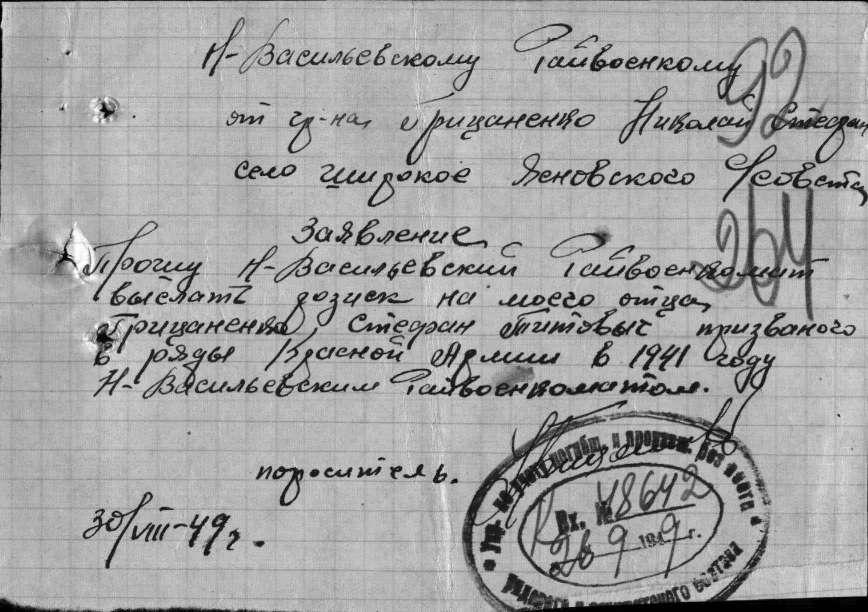 Н-Васильевскому Райвоенкому
от гр-на Грицаненко Николай Стефан
село Широкое Ясновского с/совета
Заявление
Прошу Н-Васильевский Райвоенкомат
выслать розиск на моего отца
Грицаненко Стефан Титовыч призваного
в ряды Красной Армии в 1941 году
Н-Васильевским Райвоенкоматом.
поросытель.
30/VIII-49г.
92
264
Упр. по учету погибш. и пропавш. без вести
Вх. № 48642
26 9 1949 г.
рядового и сержантского состава